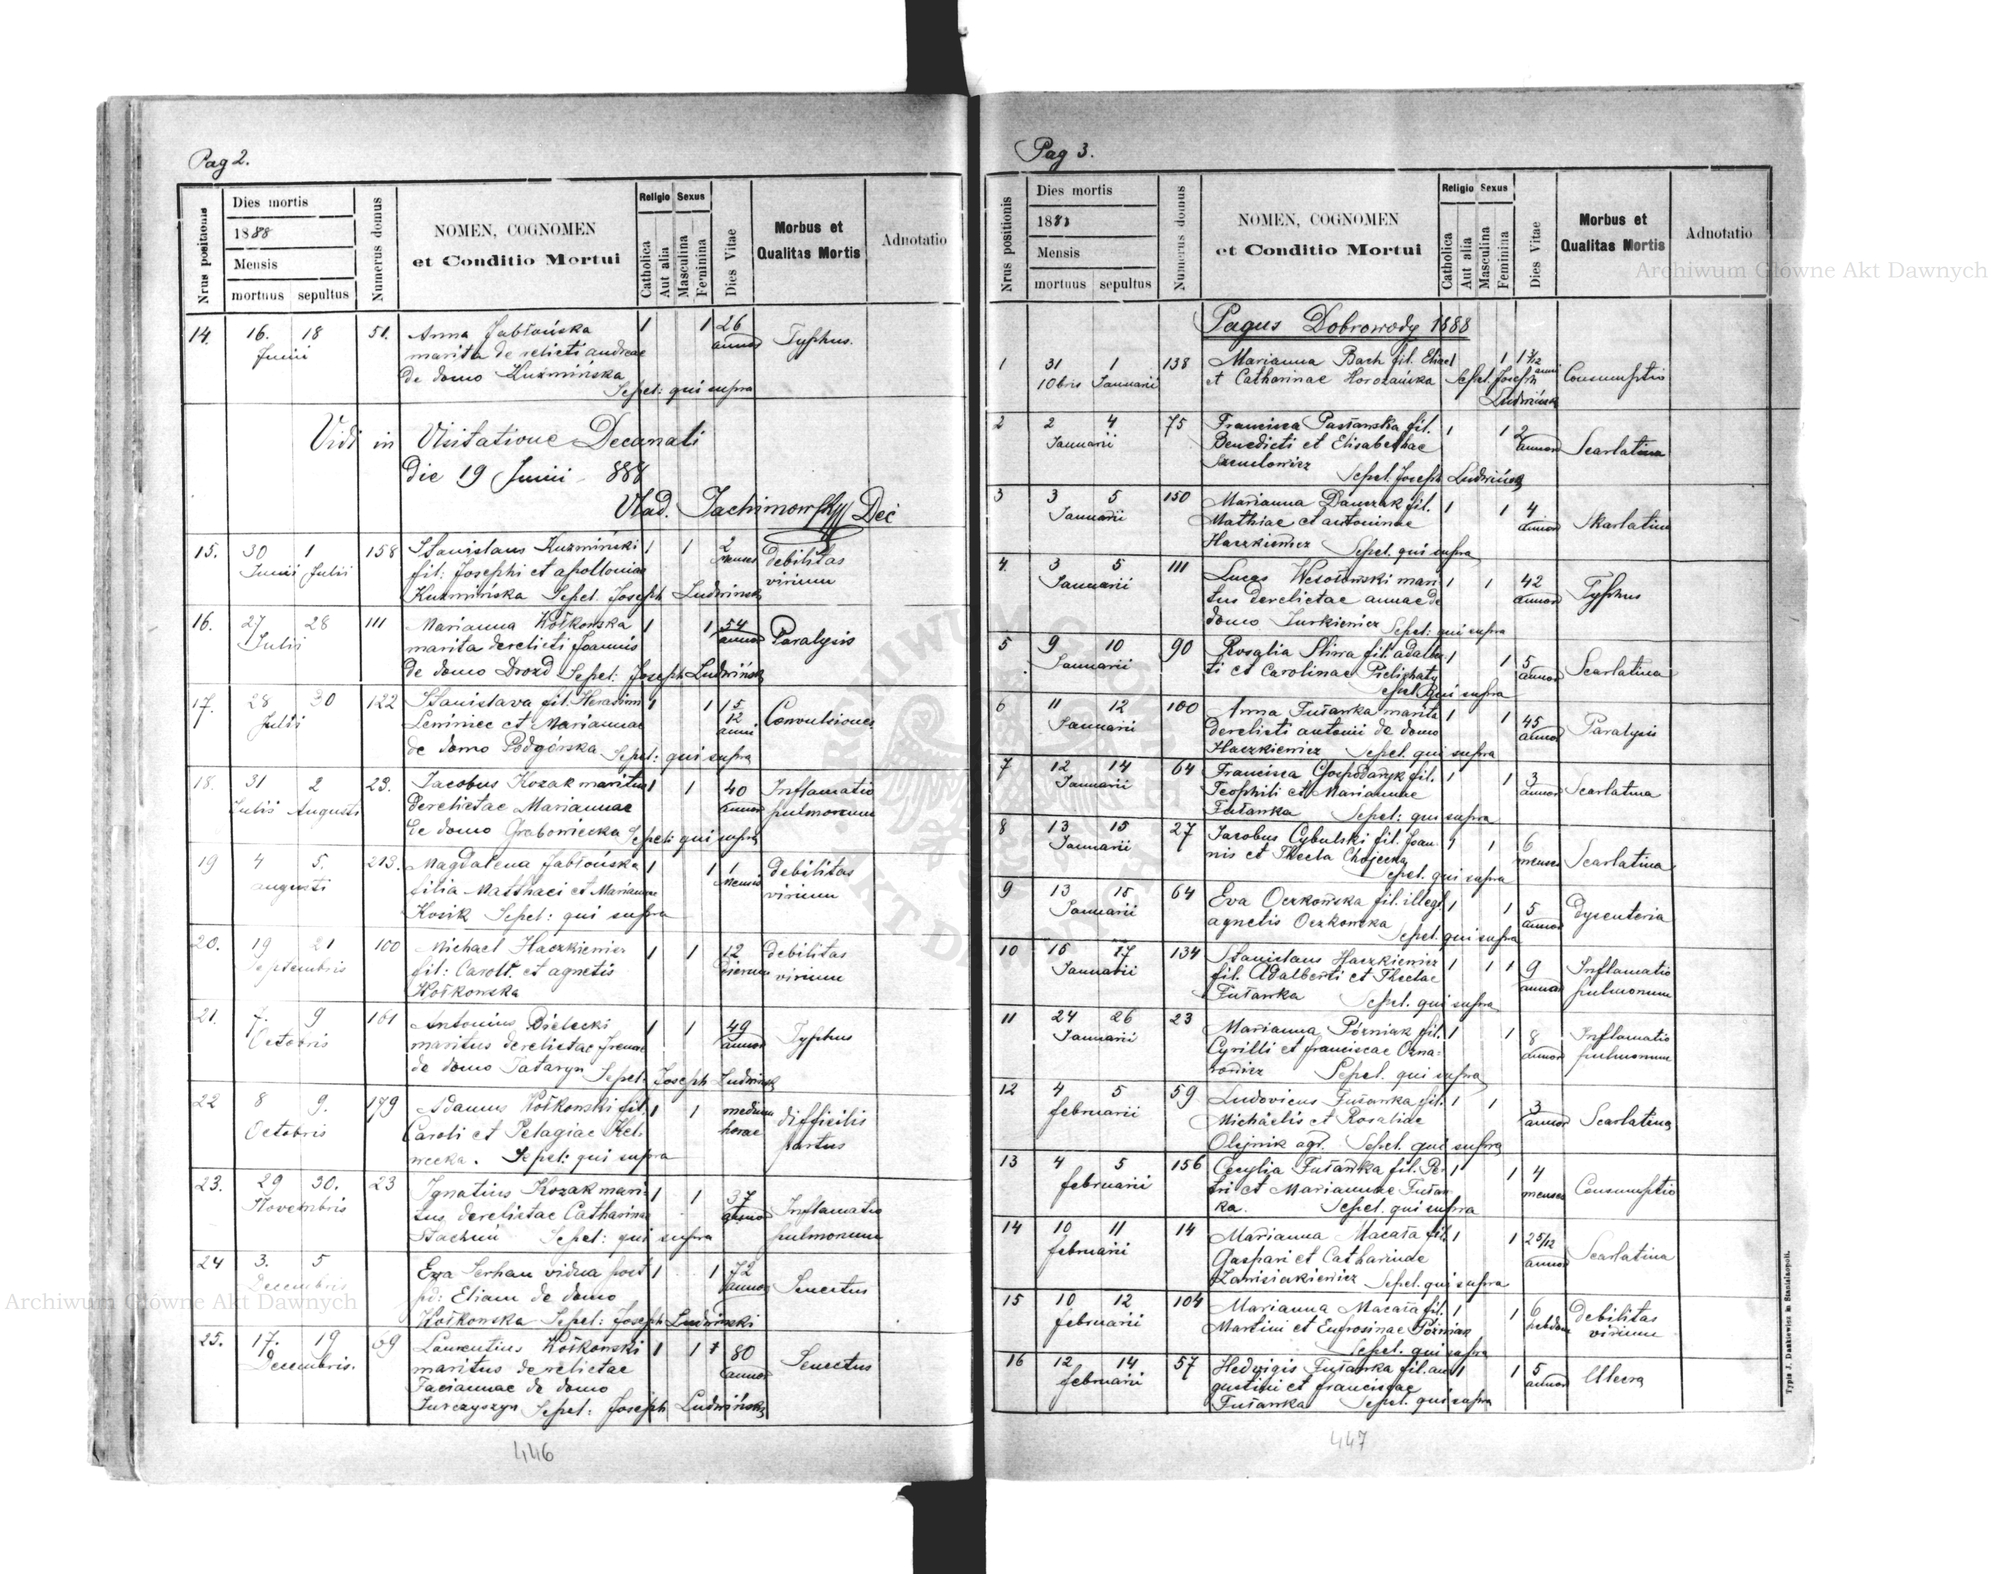 Pag 2.
Nrus positionis
Dies mortis
1888
Mensis
mortuus sepultus
Numerus domus
NOMEN, COGNOMEN
et Conditio Mortui
Religio Sexus
Catholica
Aut alia
Masculina
Feminina
Dies Vitae
Morbus et
Qualitas Mortis
Adnotatio
14. 16. 18 51. Anna Jabłońska 1 1 26
Junii marita de relicti andreae annor Typhus.
de domo Kuzmińska
Sepel: qui supra
Vidi in Visitatione Decanali
die 19 Junii 888
Vlad. Jachimowski Dec
15. 30 1 158 Stanislaus Kuzmiński 1 1 2 Debilitas
Junii Julii fil: Josephi et apolloniae menses virium
Kuzmińska Sepel. Joseph Ludwinski
16. 27 28 111 Marianna Kołkowska 1 1 54 Paralysis
Julii marita derelicti Joannis annor
de domo Drozd Sepel: Joseph Ludwiński
17. 28 30 122 Stanislava fil. Herasimi 1 1 15 Convulsiones
Julii et Mariannae 12 anni
de domo Podgórska Sepel: qui supra
18. 31 2 23. Jacobus Kozak maritus 1 1 40 Inflamatio
Julii Augusti derelictae Mariannae annor pulmonum
de domo Grabowiecka Sepel: qui supra
19 4 5. 213. Magdalena Jabłońska 1 1 1 debilitas
augusti filia Matthaei et Mariannae mensis virium
Kosik Sepel: qui supra
20. 19 21 100 Michael Haczkiewicz 1 1 12 debilitas
Septembris fil: Caroli et agnetis dierum virium
Kołkowska
21. 7. 9 161 Antonius Bielecki 1 1 49 Typhus
Octobris maritus derelictae Irenae annor
de domo Tataryn Sepel. Joseph Ludwinski
22 8 9. 179 Adamus Kołkowski fil. 1 1 mediae difficilis
Octobris Caroli et Pelagiae horae partus
wecka. Sepel: qui supra
23. 29 30. 23 Ignatius Kozak mari- 1 1 37 Inflamatio
Novembris tus derelictae Catharinae annor pulmonum
Stachów Sepel: qui supra
24 3. 5 Eva Serhan vidua post 1 1 72 Senectus
Decembris pd: Eliam de domo annor
Kołkowska Sepel: Joseph Ludwinski
25. 17. 19 69 Laurentius Kołkowski 1 1 80 Senectus
Decembris. maritus derelictae annor
Taciannae de domo
Jurczyszyn Sepel: Joseph Ludwiński
446
Pag 3.
Nrus positionis
Dies mortis
1888
Mensis
mortuus sepultus
Numerus domus
NOMEN, COGNOMEN
et Conditio Mortui
Religio Sexus
Catholica
Aut alia
Masculina
Feminina
Dies Vitae
Morbus et
Qualitas Mortis
Adnotatio
Pagus Dobrowody 1888
1 31 1 138 Marianna Bach fil. 1 Consumptio
10bris Januarii et Catharinae Horożańska Sepel. Joseph
Ludwiński
2 2 4 75 Francisca Pasławska fil. 1 1 2 Scarlatina
Januarii Benedicti et Elisabethae annor
Szmulowicz
Sepel. Joseph Ludwiński
3 3 5 150 Marianna Danczak fil. 1 1 4 Skarlatina
Januarii Mathiae et antoninae annor
Haczkiewicz Sepel. qui supra
4. 3 5 111 Lucas Wesołowski mari 1 1 42 Typhus
Januarii tus derelictae annae de annor
domo Jurkiewicz Sepel: qui supra
5 9 10 90 Rosalia Śliwa fil. adalber 1 1 5 Scarlatina
Januarii ti et Carolinae Pielichaty annor
Sepel. qui supra
6 11 12 100 Anna Futawka marita 1 1 45 Paralysis
Januarii derelicti antonii de domo annor
Haczkiewicz Sepel. qui supra
7 12 14 64 Francisca Gospodaryk fil. 1 1 3 Scarlatina
Januarii Teophili et Mariannae annor
Futawka Sepel: qui supra
8 13 15 27 Jacobus Cybulski fil. Joan- 1 1 6 Scarlatina
Januarii nis et Thecla Chojecka menses
Sepel. qui supra
9 13 15 64 Eva Oczkowska fil. illeg. 1 1 5 Dysenteria
Januarii agnetis Oczkowska annor
Sepel. qui supra
10 16 17 134 Stanislaus Haczkiewicz 1 1 1 9 Inflamatio
Januarii fil. Adalberti et Theclae annor pulmonum
Futawka Sepel. qui supra
11 24 26 23 Marianna Póżniak fil. 1 1 8 Inflamatio
Januarii Cyrilli et franciscae Ozna- annor pulmonum
rowicz Sepel. qui supra
12 4 5 59 Ludovicus Futawka fil. 1 1 3 Scarlatina
februarii Michäelis et Rosaliae annor
Olejnik agr. Sepel. qui supra
13 4 5 156 Cecylia Futawka fil. Pe- 1 1 4 Consumptio
februarii tri et Mariannae Futaw menses
ka. Sepel. qui supra
14 10 11 14 Marianna Macała fil. 1 1 2 5/12 Scarlatina
februarii Gaspari et Catharinae annor
Zawisiakiewicz Sepel. qui supra
15 10 12 104 Marianna Macała fil. 1 1 6 debilitas
februarii Martini et Eufrosinae Póżniak hebdom virium
Sepel. qui supra
16 12 14 57 Hedvigis Futawka fil. au 1 1 5 Ulcera
februarii gustini et franciscae annor
Futawka Sepel. qui supra
Typis J. Dankiewicz in Stanislaopoli.
447
Archiwum Główne Akt Dawnych
Archiwum Główne Akt Dawnych
ARCHIWUM GŁÓWNE AKT DAWNYCH